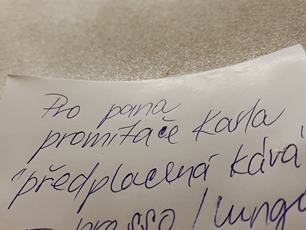 Pro pana
promítače Karla
"předplacená káva"
presso / lungo